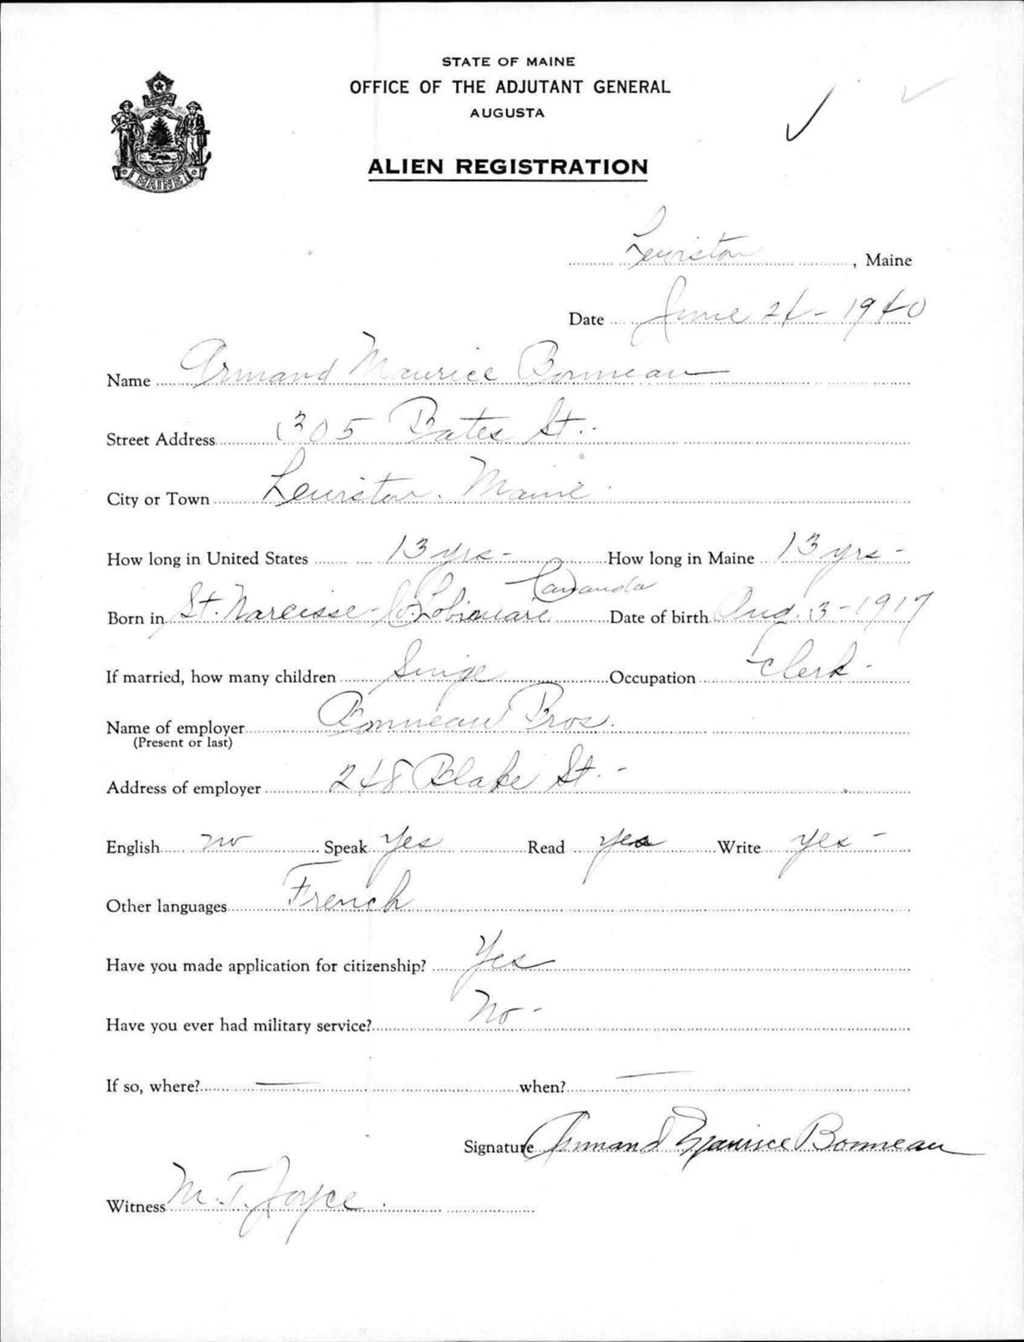 STATE OF MAINE
OFFICE OF THE ADJUTANT GENERAL
AUGUSTA
ALIEN REGISTRATION
MAINE
Lewiston, Maine
Date June 26 - 1940
Name Armand Maurice Bonneau
Street Address 305 Bates St.
City or Town Lewiston. Maine.
How long in United States 13 yrs - How long in Maine 13 yrs -
Cananda
Born in St. Narcisse - Co Date of birth Aug. 3 - 1917
If married, how many children Singe Occupation Clerk -
Name of employer Bonneau Bros.
(Present or last)
Address of employer 248 Blake St. -
English no Speak Yes Read yes Write yes -
Other languages French
Have you made application for citizenship? Yes
Have you ever had military service? No -
If so, where? — when? —
Signature Armand Maurice Bonneau
Witness M. T. Joyce.